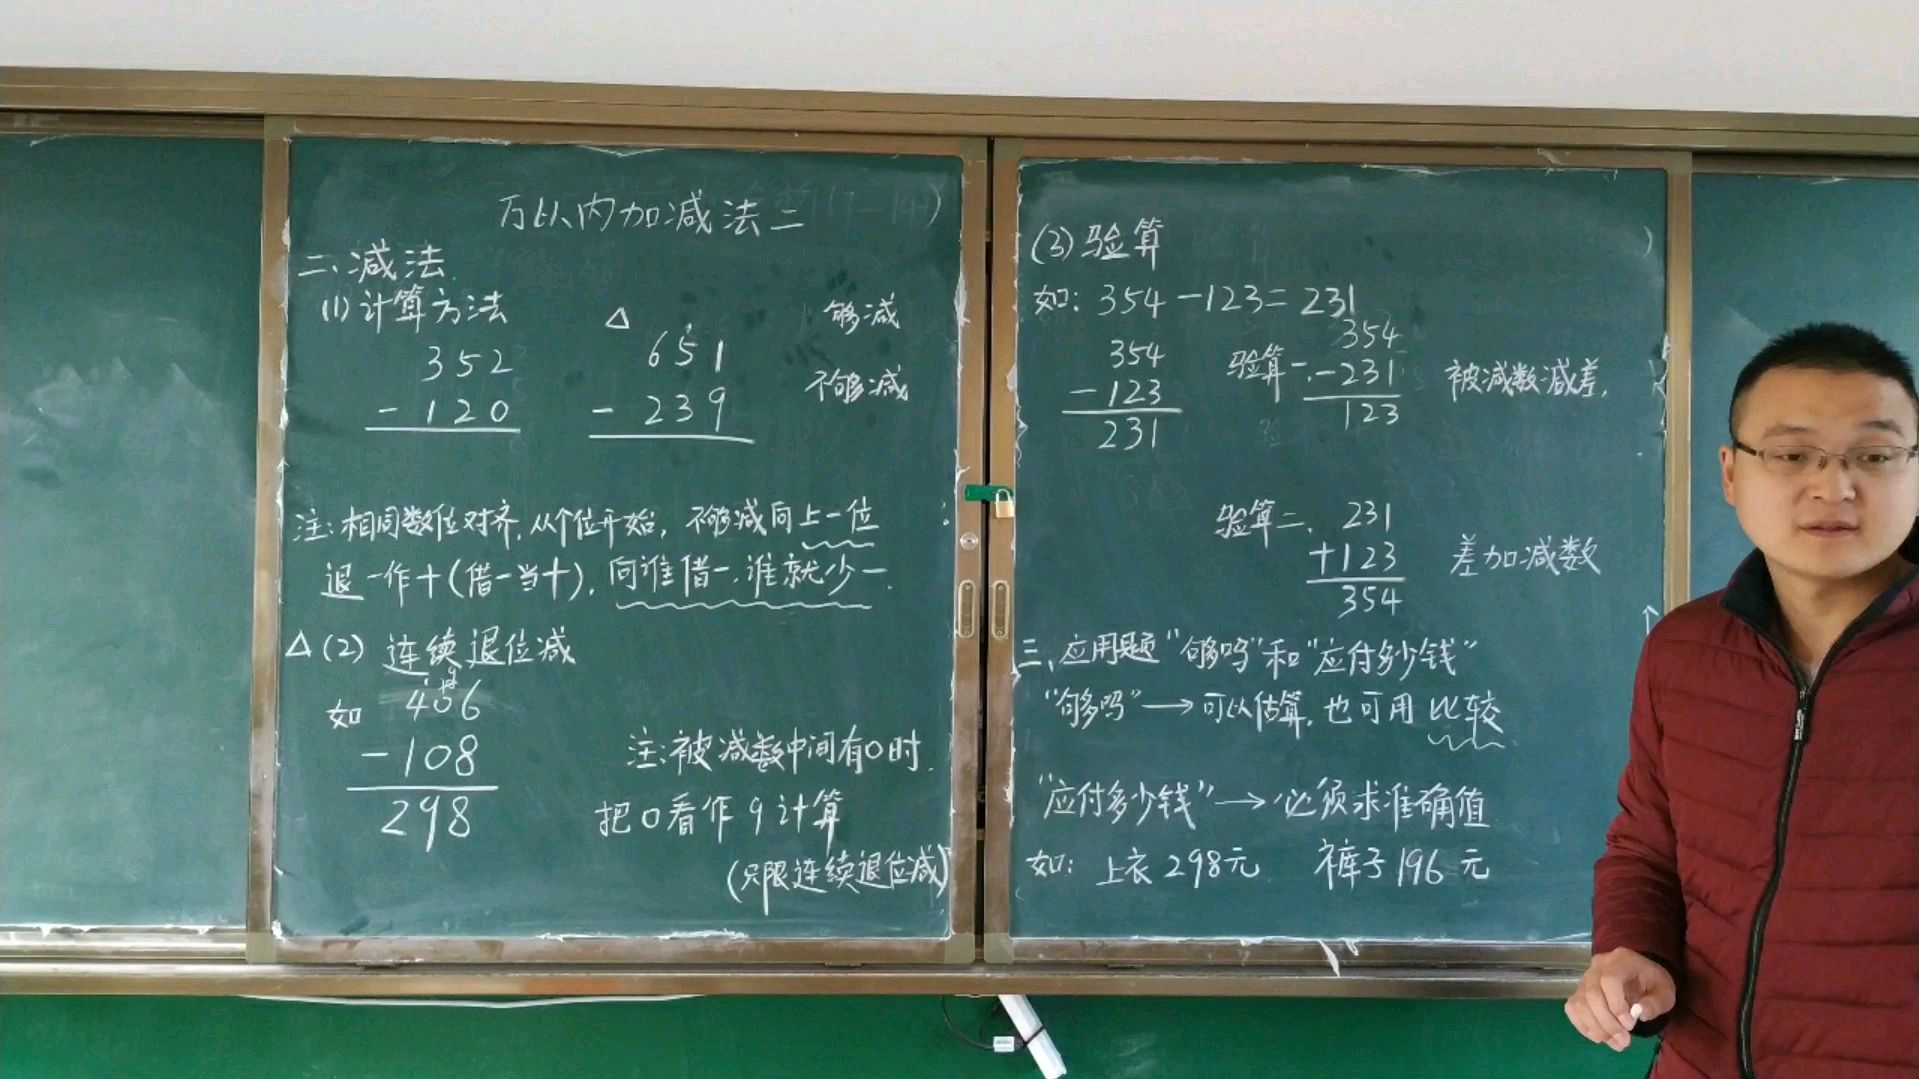 万以内加减法二
二、减法
(1)计算方法
352
-120
△
651
-239
够减
不够减
注:相同数位对齐,从个位开始,不够减向上一位
退一作十(借一当十),向谁借一,谁就少一.
△(2) 连续退位减
如 406
-108
298
注:被减数中间有0时,
把0看作9计算
(只限连续退位减)
(3)验算
如: 354-123=231
354
-123
231
验算一、
354
-231
123
被减数减差,
验算二、
231
+123
354
差加减数
三、应用题“够吗”和“应付多少钱”
“够吗”→可以估算,也可用 比较
“应付多少钱”→必须求准确值
如: 上衣298元 裤子196元